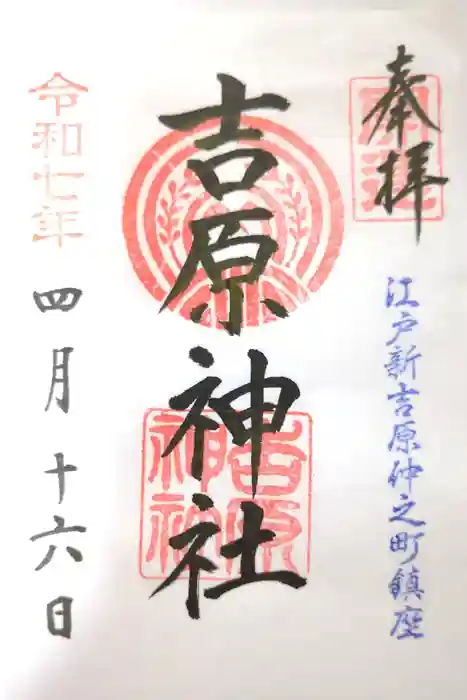 奉拝
江戸新吉原仲之町鎮座
吉原神社
吉原神社
令和七年
四月十六日